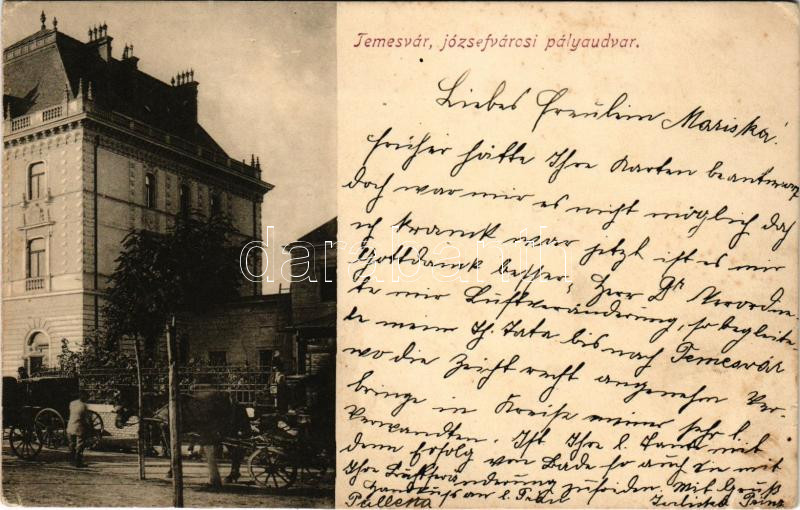 Temesvár, józsefvárosi pályaudvar.
Liebes Freulein Mariska!
früher hätte Ihre Karten beantworz
doch war mir es nicht möglich daß
ich kranck war jetzt ist es mir
Gottdank besser, Herr Dr Verordne
te mir Luftveränderung, so begleite
te mein Tata bis nach Temesvár
wo die Zeicht recht angenehm Ver
bringe in Kreise meiner sehr l.
Verwandten. Ist Ihre l. Tante mit
dem Erfolg von Bade so auch Sie mit
Ihre Luftveränderung zufrieden. Mit Gruß
Handkuß an l.
darabanth